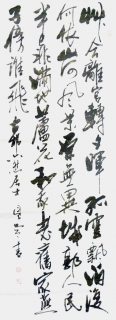 艸合離宮轉夕暉孤雲飄泊復
何依山河風景元無異城郭人民
半已非滿地蘆花和我老舊家燕
子傍誰飛